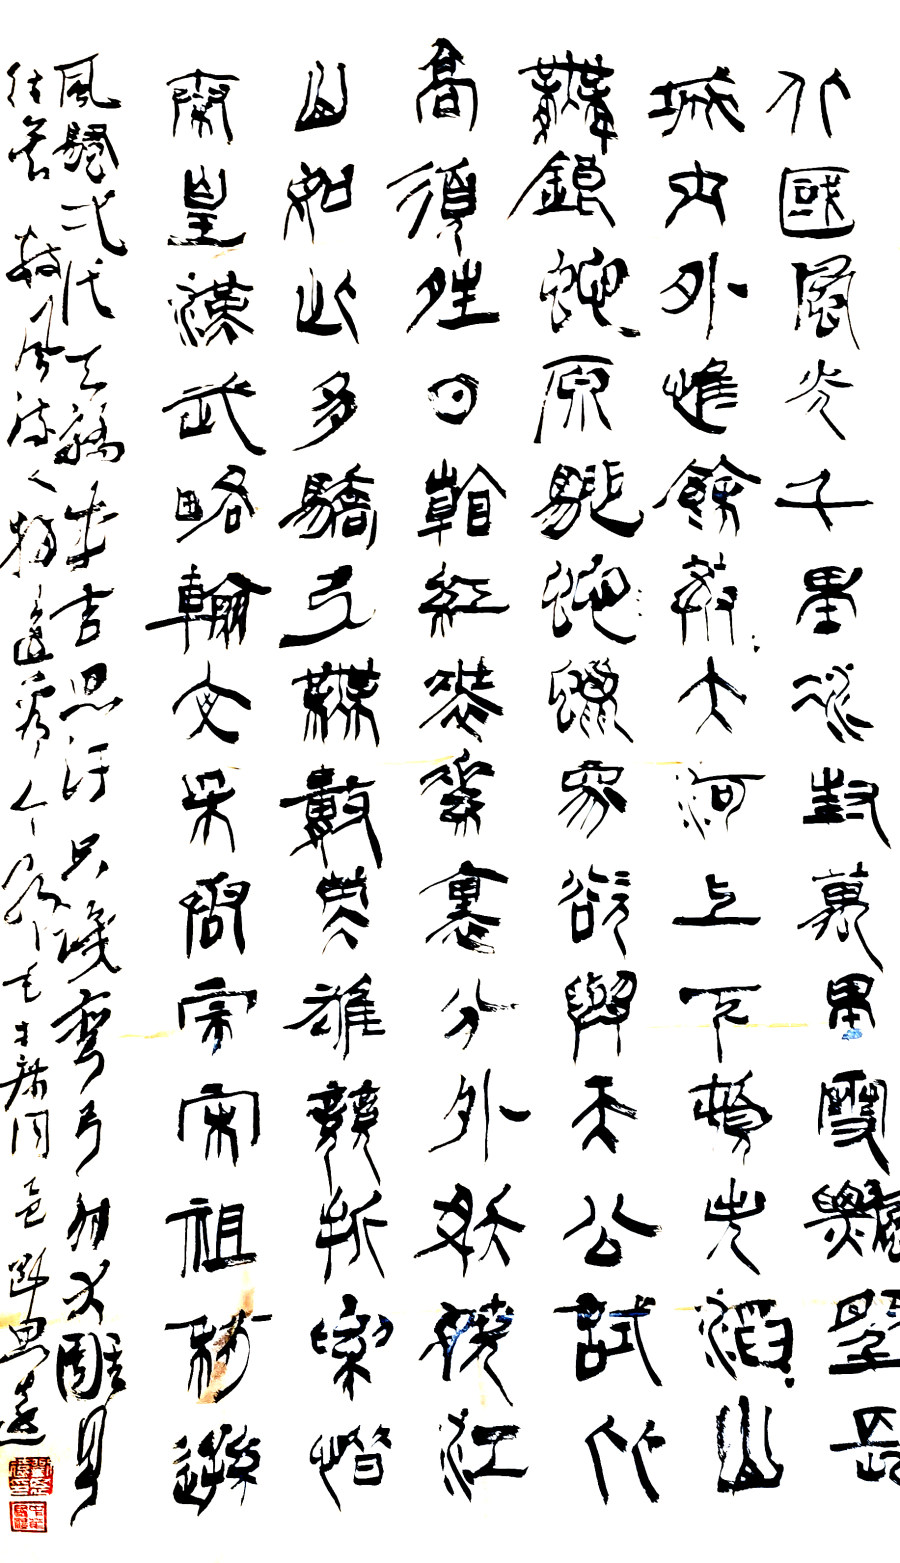 北國風光千里冰封萬里雪飄望長
城内外惟餘莽〻大河上下頓失滔〻山
舞銀蛇原馳蛇蠟象欲與天公試比
高須晴日看紅裝素裹分外妖嬈江
山如此多驕引無數英雄競折腰惜
秦皇漢武略輸文采唐宗宋祖稍遜
風騷弌代天驕成吉思汗只識彎弓射大雕具
往矣數風流人物還看今朝毛主席詞